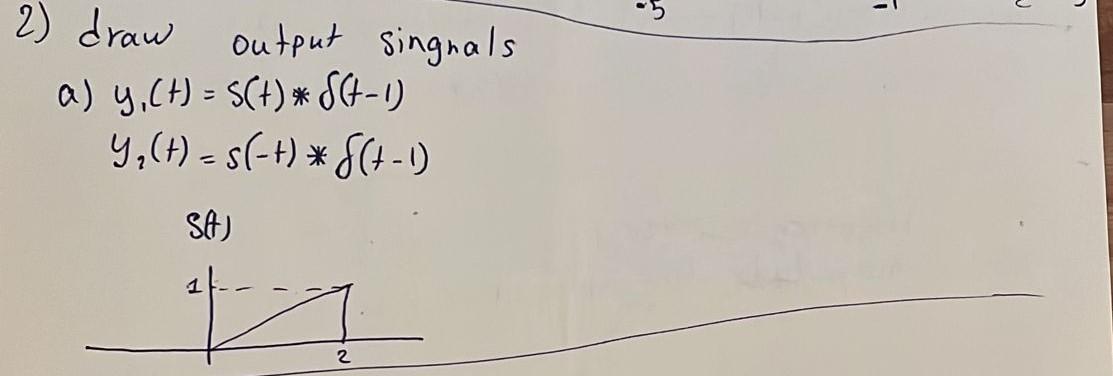 -5 -1
2) draw output singnals
a) y₁(t) = S(t) * δ(t-1)
y₂(t) = s(-t) * δ(t-1)
S(t)
1
2